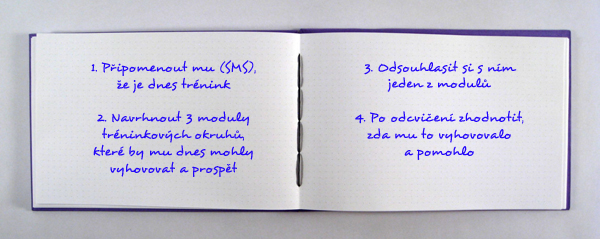 1. Připomenout mu (SMS),
že je dnes trénink
2. Navrhnout 3 moduly
tréninkových okruhů,
které by mu dnes mohly
vyhovovat a prospět
3. Odsouhlasit si s ním
jeden z modulů
4. Po odcvičení zhodnotit,
zda mu to vyhovovalo
a pomohlo